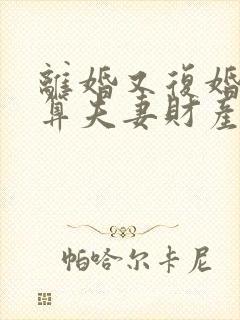 離婚又復婚
算夫妻財產
帕哈尔卡尼